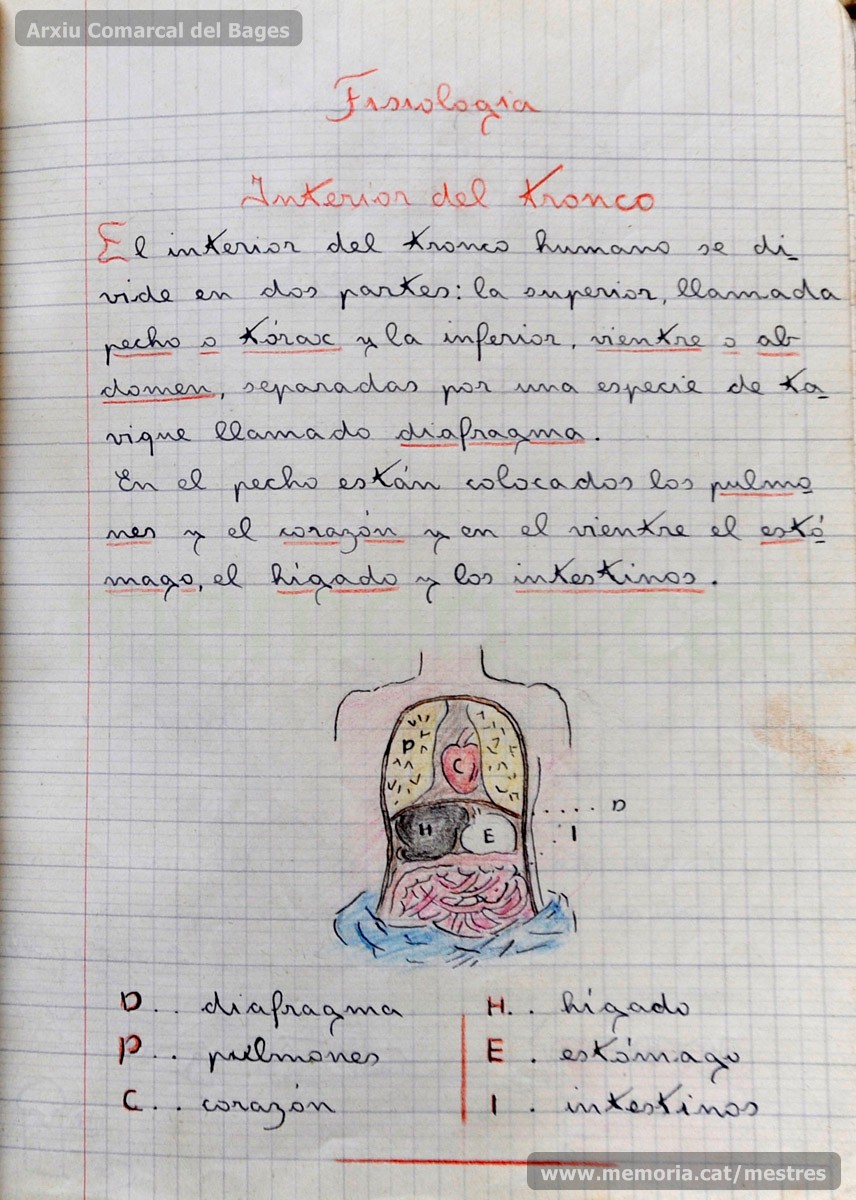 Arxiu Comarcal del Bages
Fisiologia
Interior del tronco
El interior del tronco humano se di-
vide en dos partes: la superior, llamada
pecho o tórax y la inferior, vientre o ab
domen, separadas por una especie de ta-
vique llamado diafragma.
En el pecho están colocados los pulmo
nes y el corazón y en el vientre el estó
mago, el hígado y los intestinos.
P
C
D
H
E
I
D.. diafragma
H.. hígado
P.. pulmones
E. estómago
C.. corazón
I. intestinos
www.memoria.cat/mestres